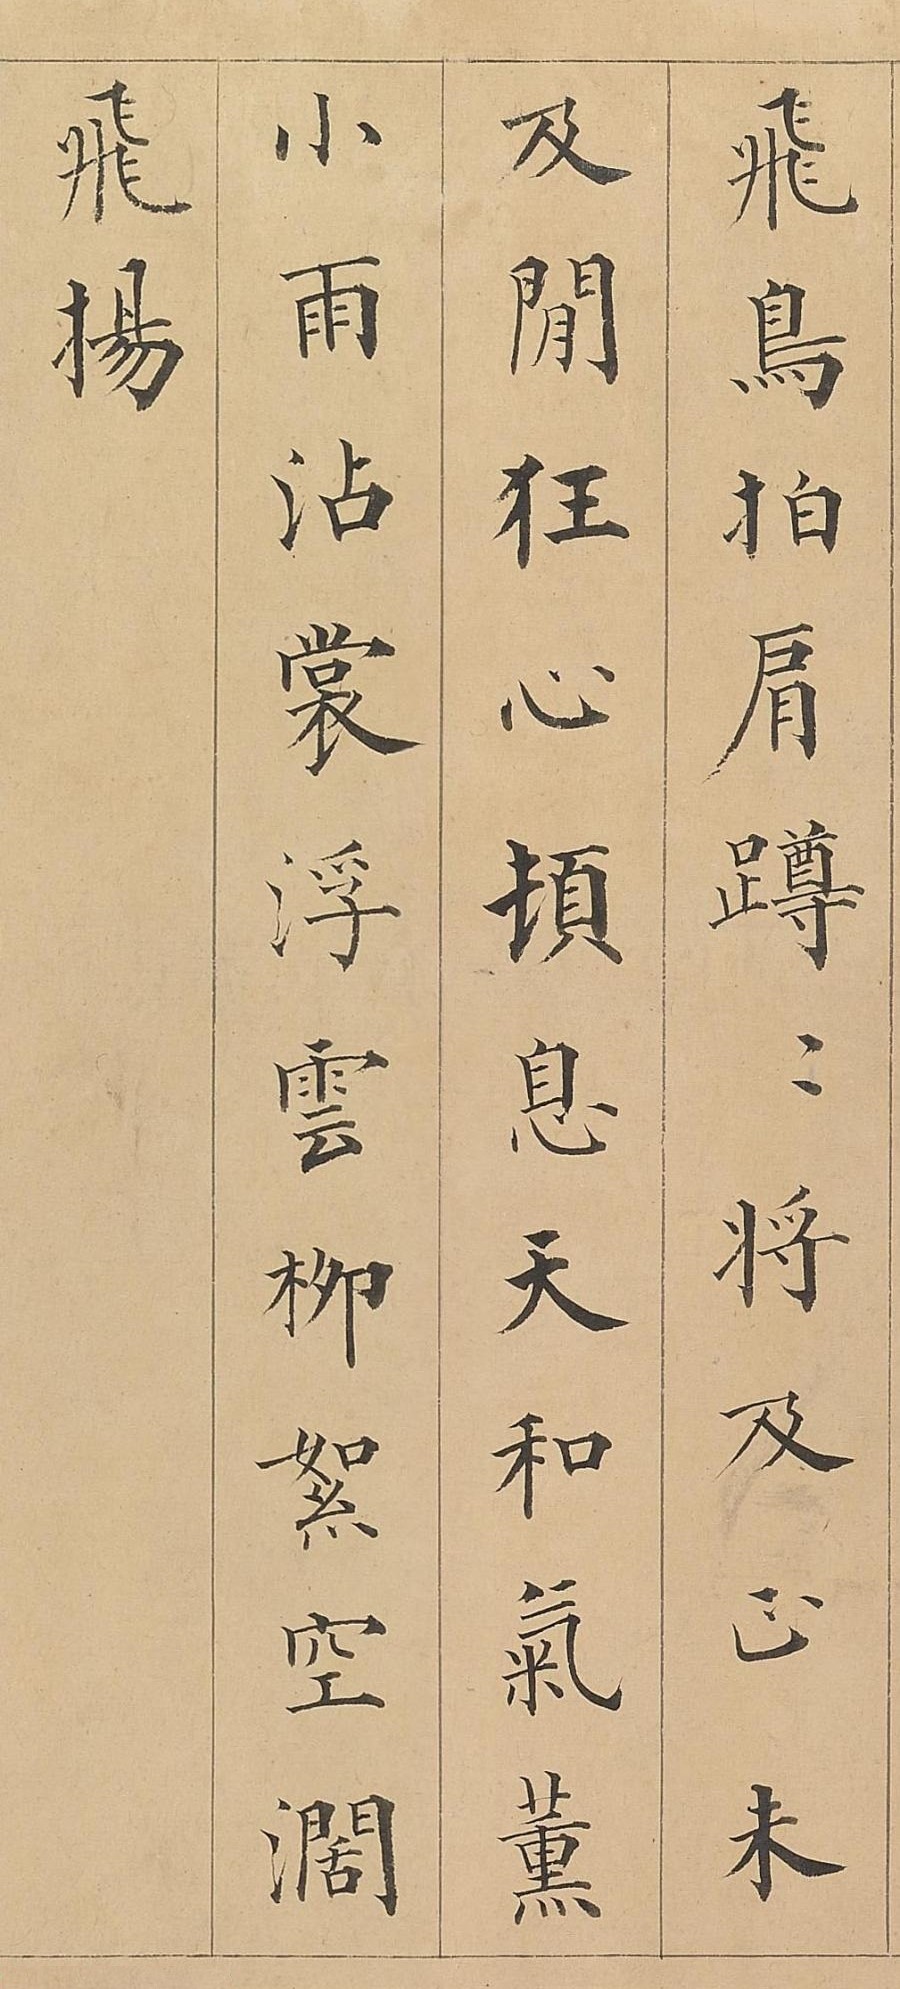 飛鳥拍肩蹲〻將及正未
及閒狂心頓息天和氣薰
小雨沾裳浮雲柳絮空濶
飛揚